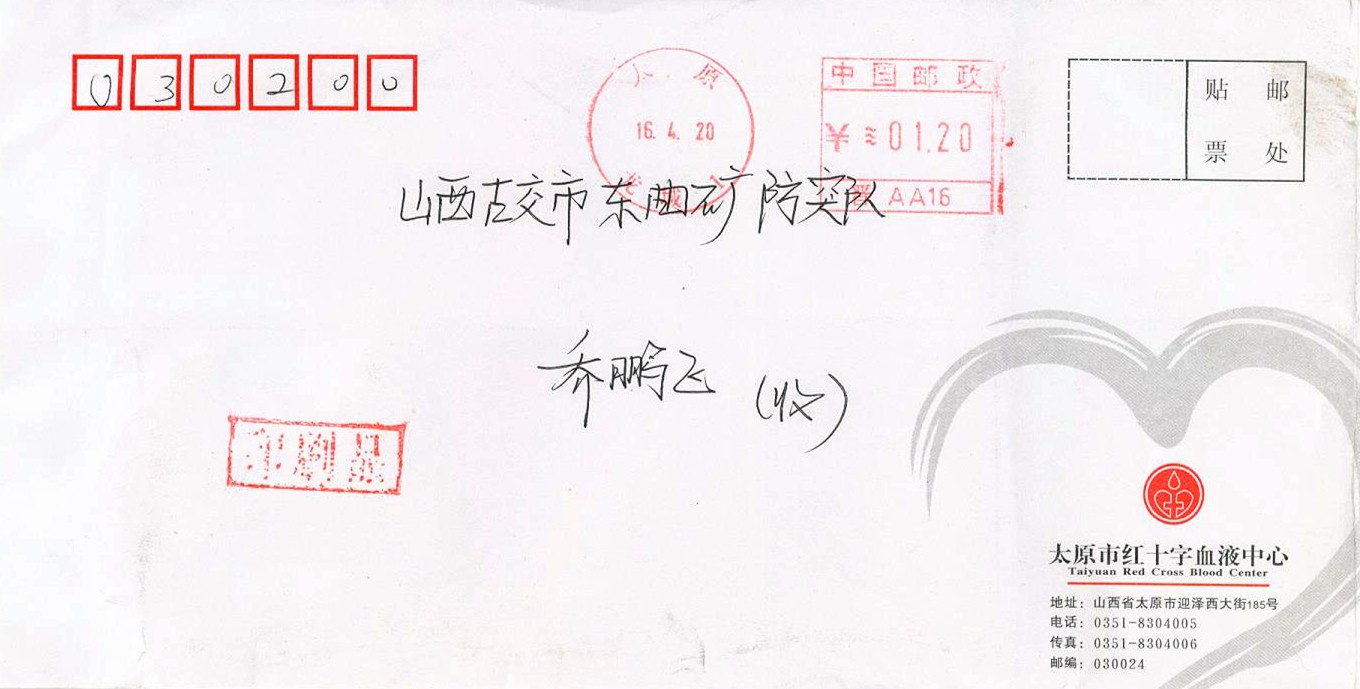 030200
太原
16.4.20
中国邮政
¥≈01.20
晋AA16
贴邮
票处
山西古交市东曲矿防突队
乔鹏飞(收)
印刷品
太原市红十字血液中心
Taiyuan Red Cross Blood Center
地址:山西省太原市迎泽西大街185号
电话:0351-8304005
传真:0351-8304006
邮编:030024